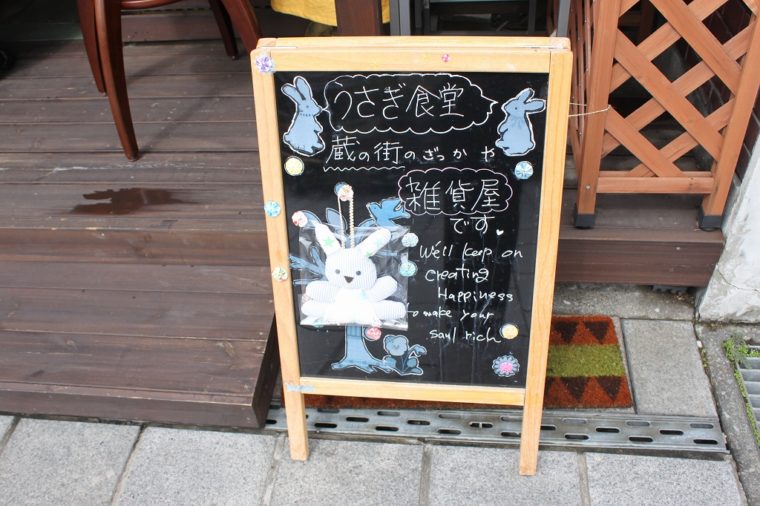 うさぎ食堂
蔵の街のざっかや
雑貨屋
です
We'll keep on
creating
Happiness
to make your
soul rich